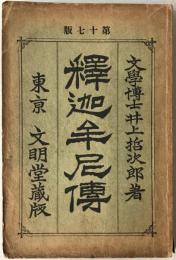 版七十第
文學博士井上哲次郎著
釋迦牟尼傳
東京 文明堂蔵版